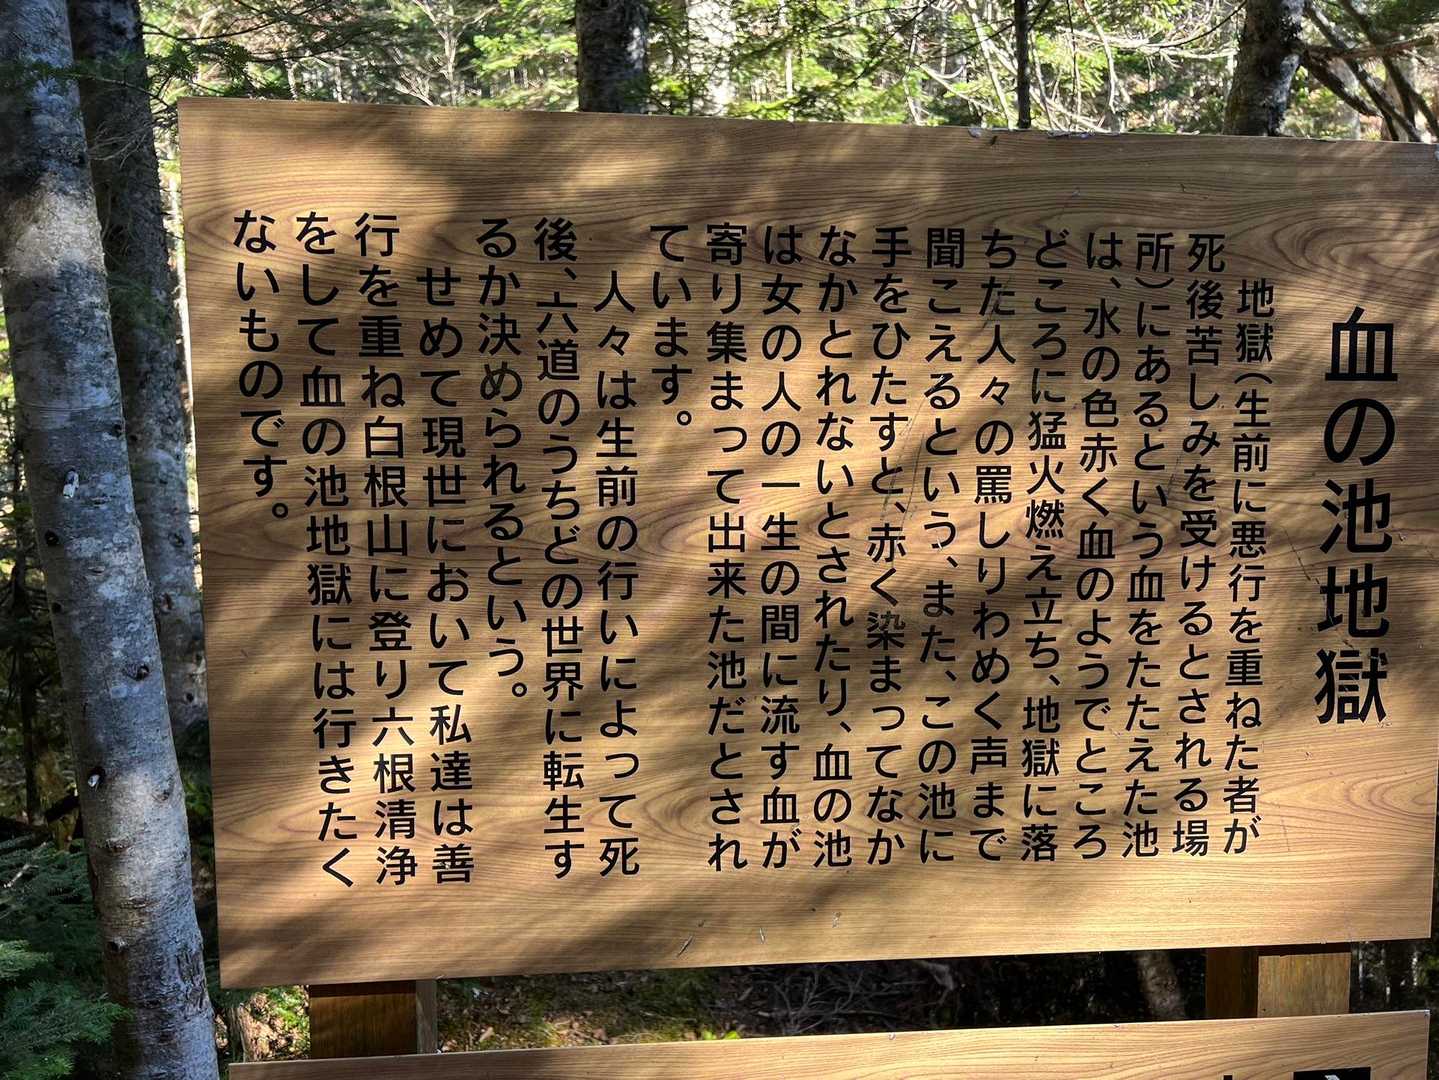 血の池地獄
地獄(生前に悪行を重ねた者が
死後苦しみを受けるとされる場
所)にあるという血をたたえた池
は、水の色赤く血のようでところ
どころに猛火燃え立ち、地獄に落
ちた人々の罵しりわめく声まで
聞こえるという、また、この池に
手をひたすと、赤く染まってなか
なかとれないとされたり、血の池
は女の人の一生の間に流す血が
寄り集まって出来た池だとされ
ています。
人々は生前の行いによって死
後、六道のうちどの世界に転生す
るか決められるという。
せめて現世において私達は善
行を重ね白根山に登り六根清浄
をして血の池地獄には行きたく
ないものです。